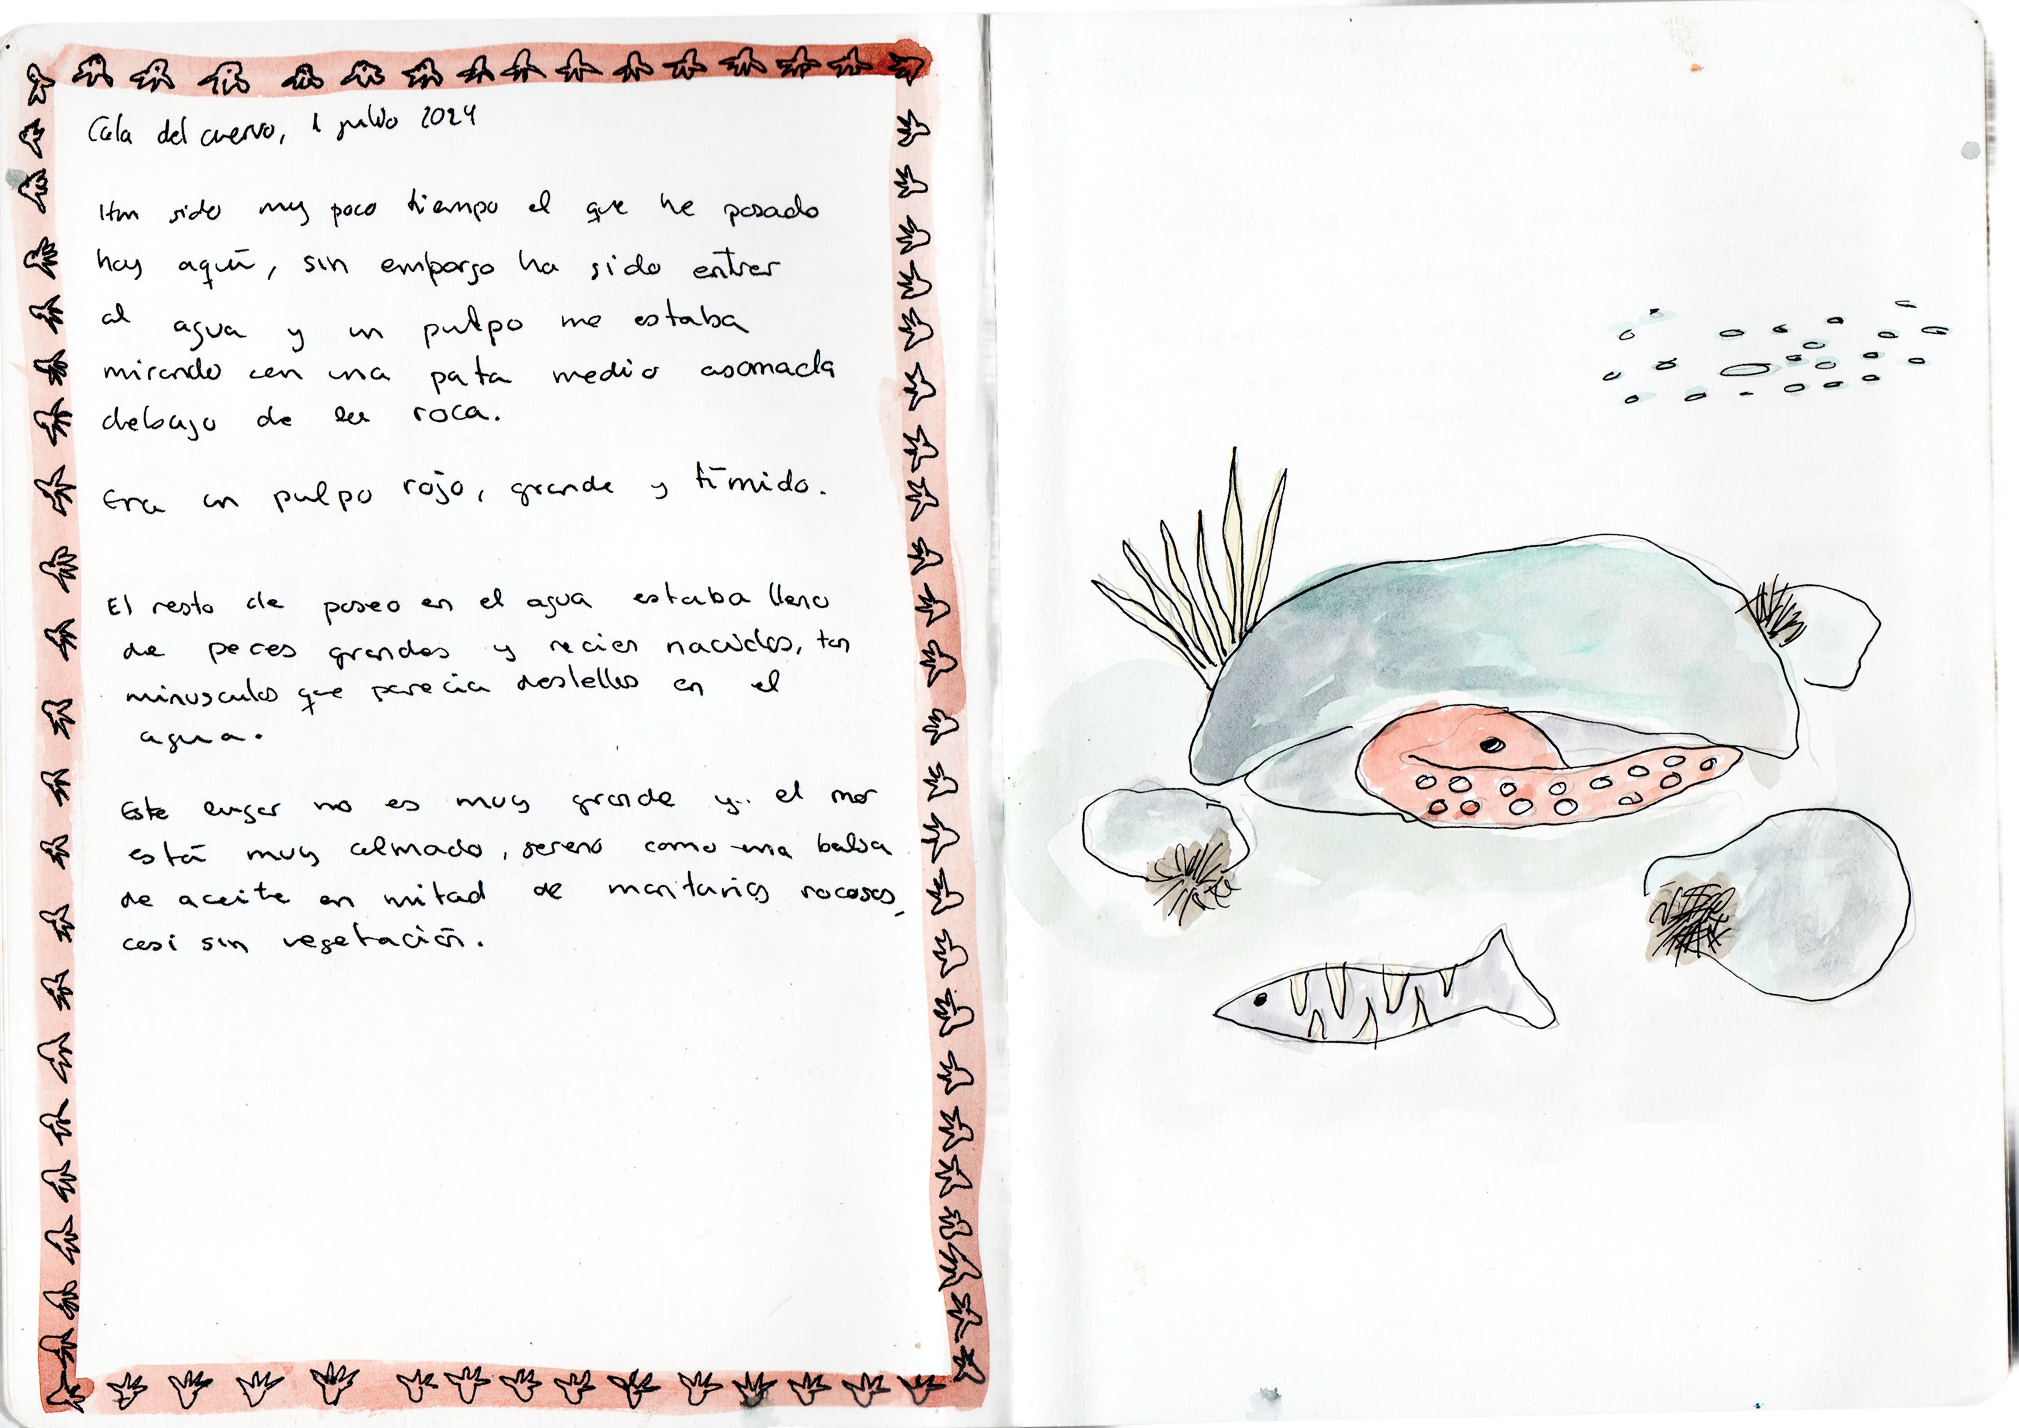 Cala del cuervo, 1 julio 2024
Han sido muy poco tiempo el que he pasado
hoy aquí, sin embargo ha sido entrar
al agua y un pulpo me estaba
mirando con una pata medio asomada
debajo de la roca.
Era un pulpo rojo, grande y tímido.
El resto de paseo en el agua estaba lleno
de peces grandes y recien nacidos, tan
minusculos que parecia destellos en el
agua.
Este lugar no es muy grande y el mar
está muy calmado, sereno como una balsa
de aceite en mitad de montañas rocosas,
casi sin vegetación.